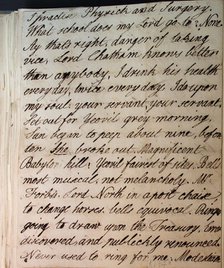 I practise Physick and Surgery.
What school does my Lord go to None
My that's right, danger of taking
vice. Lord Chatham knows better
than anybody, I drink his health
everyday, twice every day. I do upon
my soul. your servant, your servant
Set out for Yeovil grey morning
Sun began to peep about nine, before
ten She broke out. Magnificent
Babylon hill. Yovil fairest of
most musical, not melancholy. Mr
Forbis. Lord North in a port chaise,
to change horses. bell equivocal.
going to draw upon the Treasury.
discovered, and publickly renounced
Never used to ring for me. Moderation